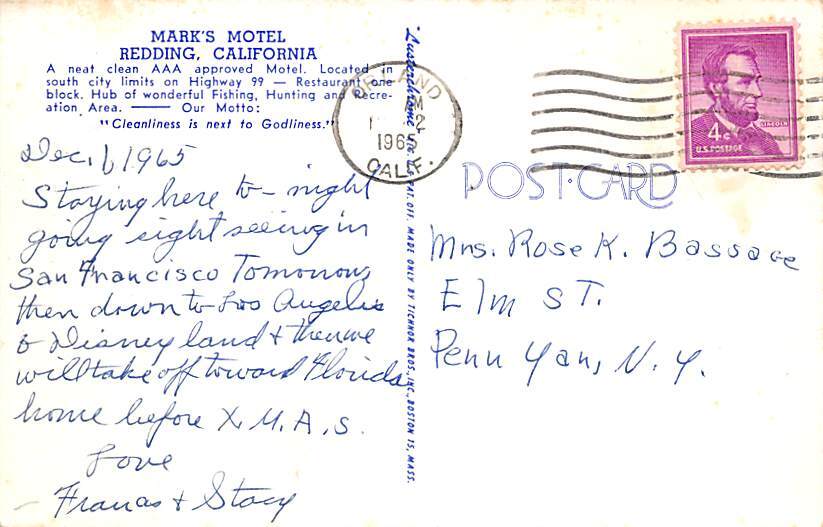 MARK'S MOTEL
REDDING, CALIFORNIA
A neat clean AAA approved Motel. Located in
south city limits on Highway 99 — Restaurant one
block. Hub of wonderful Fishing, Hunting and Recre-
ation Area. —— Our Motto:
"Cleanliness is next to Godliness."
Dec. 1, 1965
Staying here to-night
going sight seeing in
San Francisco Tomorrow
then down to Los Angeles
& Disneyland & then we
will take off toward Florida
home before X.M.A.S.
Love
Frances & Stacy
MADE ONLY BY TICHNOR BROS., INC., BOSTON 15, MASS.
PM
2
1965
CALIF.
LINCOLN
4¢
U.S. POSTAGE
POST CARD
Mrs. Rose K. Bassage
Elm ST.
Penn Yan, N.Y.